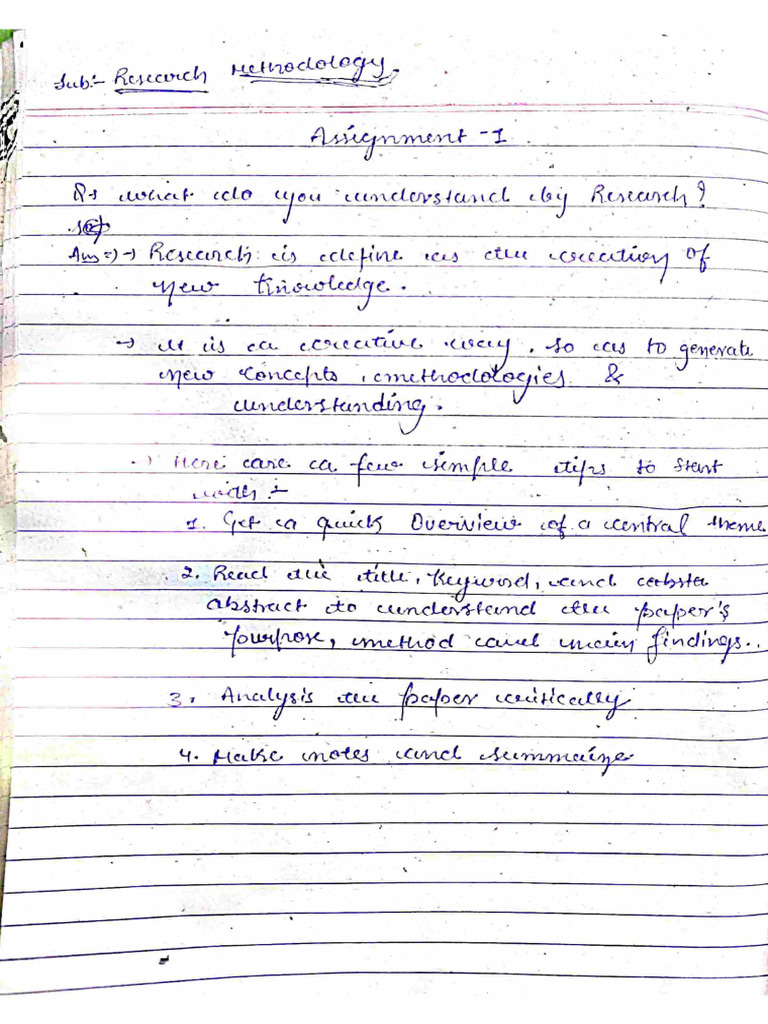 Sub:- Research Methodology.
Assignment - 1
Q1 what do you understand by Research?
Ans => → Research: is define as the creation of
new knowledge.
→ It is a creative way, so as to generate
new concepts, methodologies &
understanding.
→ Here are a few simple tips to start
with :-
1. Get a quick Overview of a central theme
2. Read the title, keyword, and
abstract to understand the paper's
purpose, method and main findings..
3. Analysis the paper critically
4. Make notes and summaize